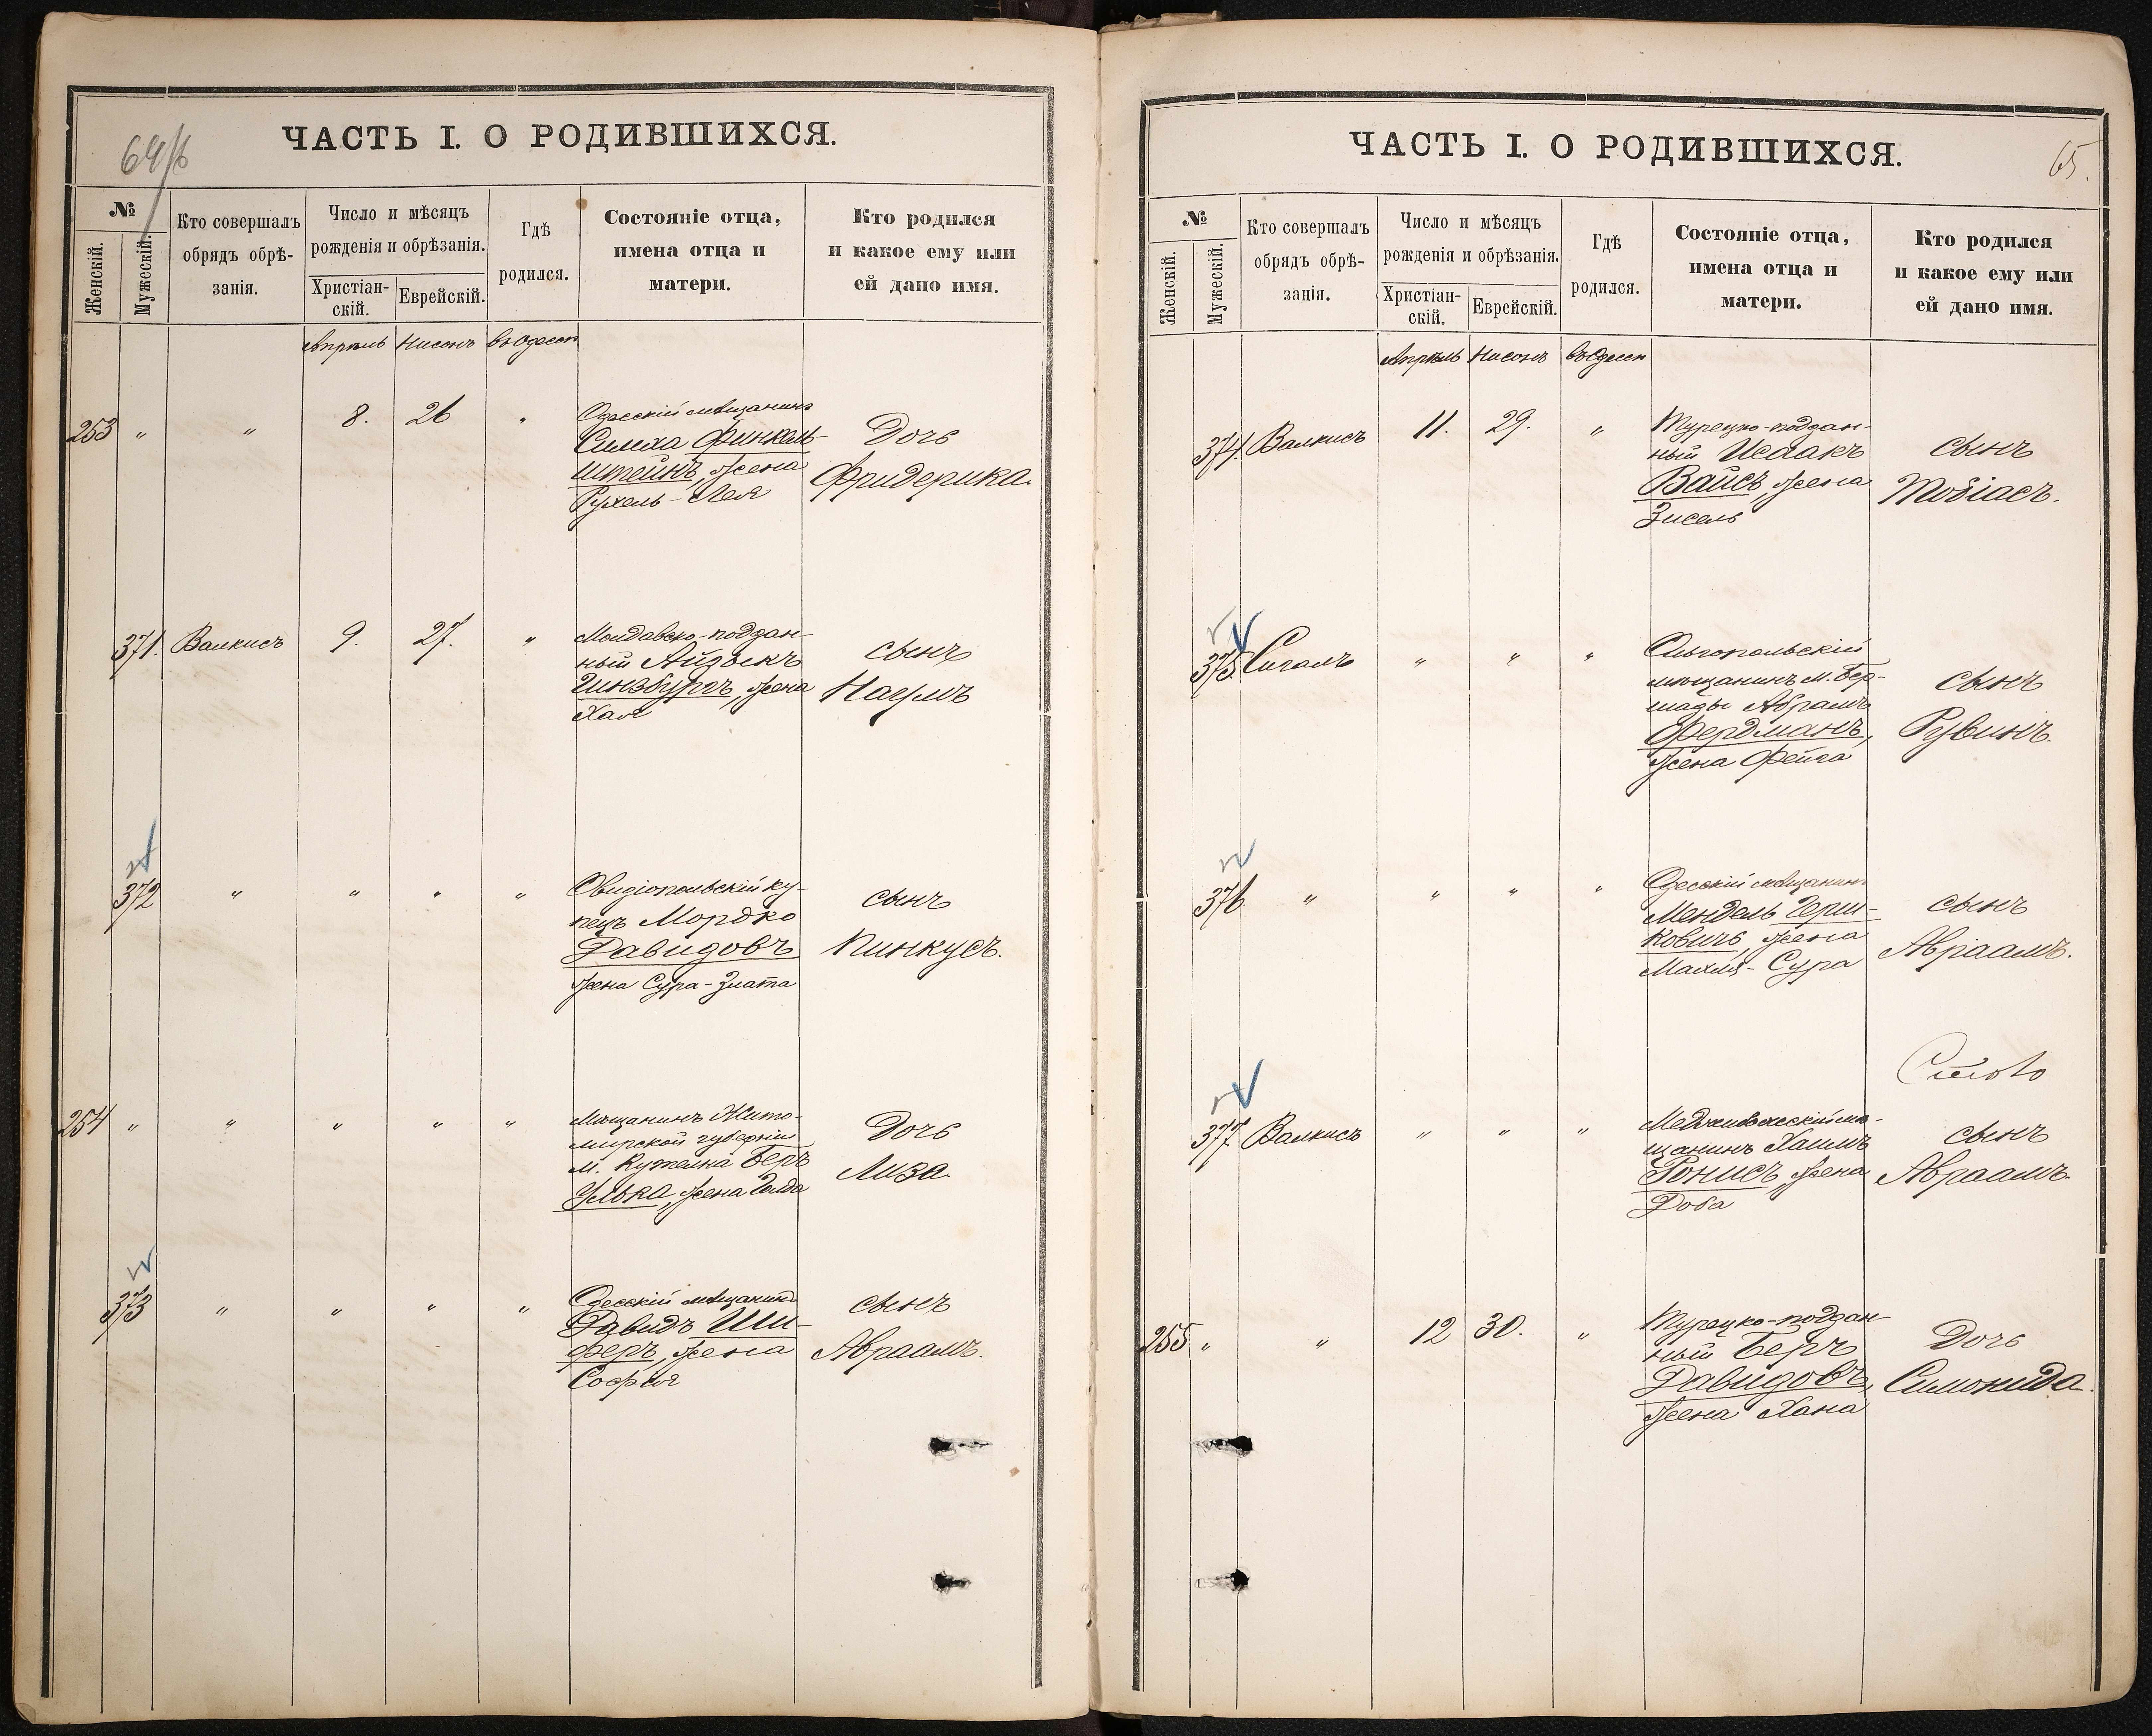 64/б
ЧАСТЬ I. О РОДИВШИХСЯ.
№
Женскій.
Мужескій.
Кто совершалъ
обрядъ обрѣ-
занія.
Число и мѣсяцъ
рожденія и обрѣзанія.
Христіан-
скій.
Еврейскій.
Гдѣ
родился.
Состояніе отца,
имена отца и
матери.
Кто родился
и какое ему или
ей дано имя.
Апрѣль Нисонъ въ Одессѣ
253 " " 8. 26 "
Одесскій мѣщанинъ
Симха Финкель-
штейнъ, жена
Рухель-Лея
Дочь
Фридерика.
371. Валкисъ 9. 27. "
Молдавско-поддан-
ный Айзыкъ
Гинзбургъ, жена
Хая
сынъ
Наумъ
372 " " " "
Овидіопольскій ку-
пецъ Мордко
Давидовъ
жена Сура-Злата
сынъ
Пинкусъ.
254 " " " " "
Мѣщанинъ Жито-
мирской губерніи
м. Беръ
Улька, жена Голда
Дочь
Лиза.
373 " " " "
Одесскій мѣщанинъ
Давидъ Ши-
феръ, жена
София
сынъ
Авраамъ.
ЧАСТЬ I. О РОДИВШИХСЯ.
65.
№
Женскій.
Мужескій.
Кто совершалъ
обрядъ обрѣ-
занія.
Число и мѣсяцъ
рожденія и обрѣзанія.
Христіан-
скій.
Еврейскій.
Гдѣ
родился.
Состояніе отца,
имена отца и
матери.
Кто родился
и какое ему или
ей дано имя.
Апрѣль Нисонъ въ Одессѣ
374. Валкисъ 11. 29. "
Турецко-поддан-
ный Исаакъ
Вайсъ, жена
Зисель
сынъ
Тобіасъ.
375. Сигалъ " " "
Ольгопольскій
мѣщанинъ м. Бер-
шады Абрамъ
Фердманъ,
жена Фейга
сынъ
Рувинъ.
376. " " " "
Одесскій мѣщанинъ
Мендель Герш-
ковичъ, жена
Махля-Сура
сынъ
Авраамъ.
377. Валкисъ " " "
Меджибожескій мѣ-
щанинъ Хаимъ
Ронисъ, жена
Доба
сынъ
Авраамъ.
255 " " 12 30. "
Турецко-поддан-
ный Беръ
Давидовъ,
жена Хана
Дочь
Симонида.